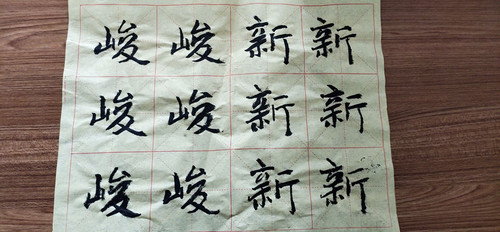 峻峻新新
峻峻新新
峻峻新新